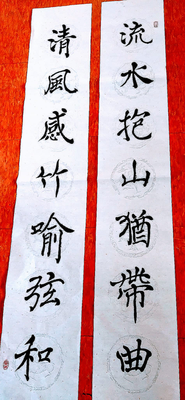 流水抱山猶帶曲
清風感竹喻弦和